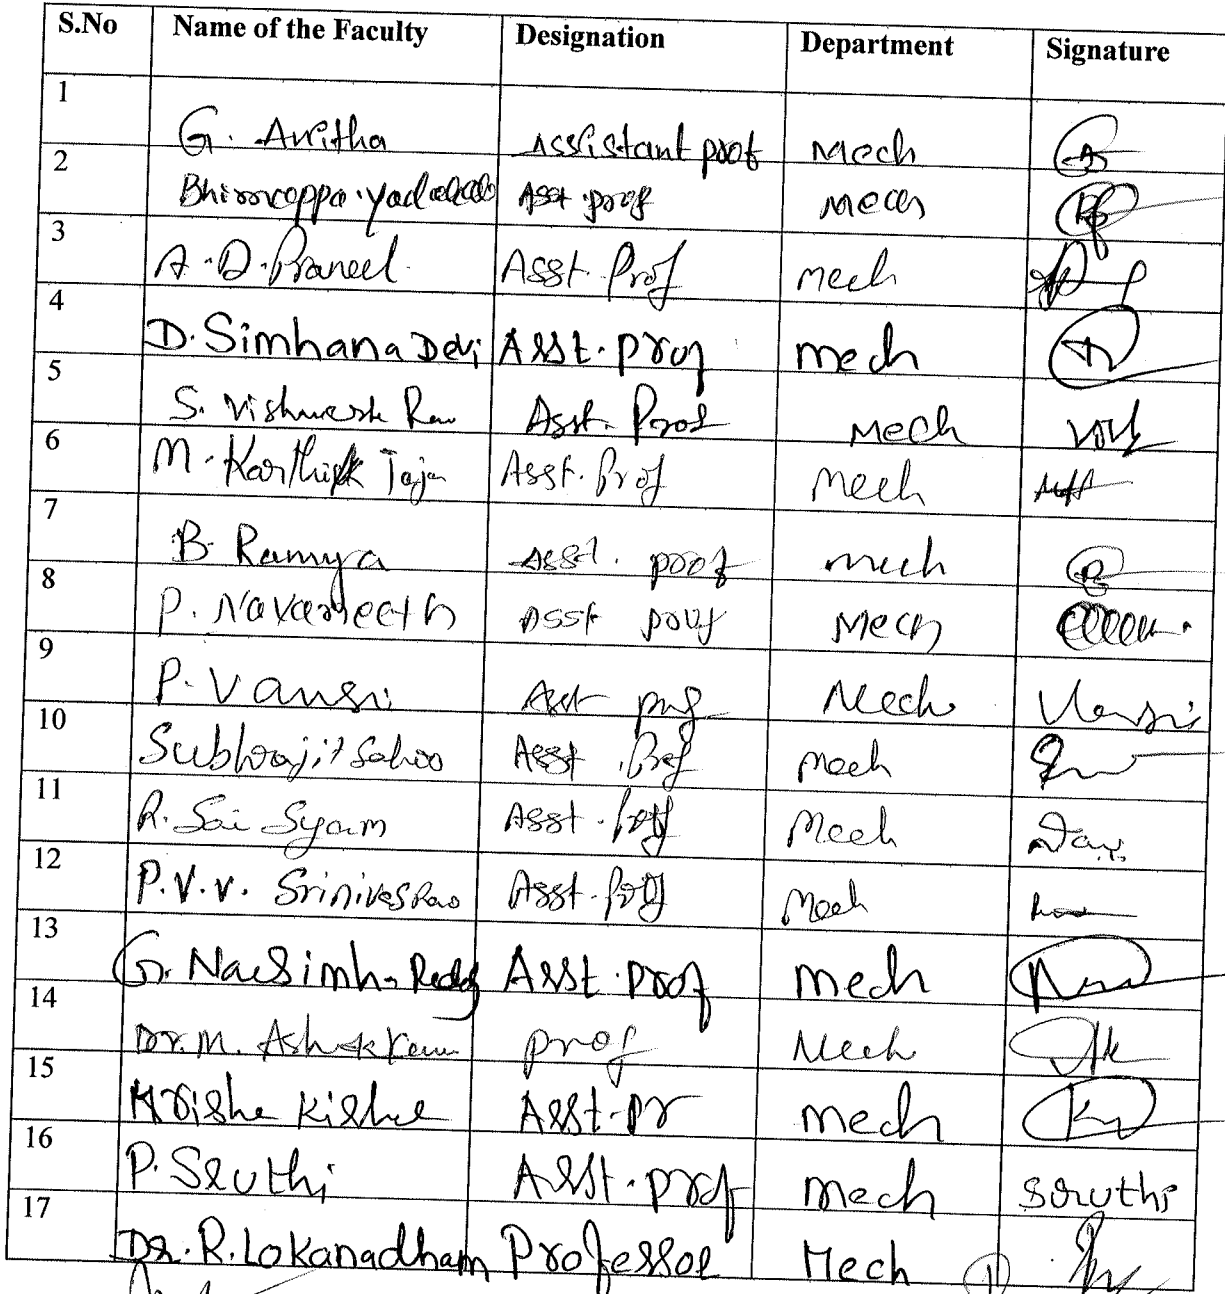 S.No Name of the Faculty Designation Department Signature
1 G. Anitha Assistant prof Mech
2 Bhimcappa. Asst prof Mech
3 A.D. Praneel. Asst Prof Mech
4 D. Simhana Devi Asst. prof mech
5 S. Vishwesh Rao Asst. Prof Mech
6 M. Karthik Teja Asst. Prof Mech
7 B. Ramya Asst. prof mech
8 P. Navaneeth Asst prof Mech
9 P. Vamsi Asst prof Mech Vamsi
10 Subhrajit Sahoo Asst. Prof Mech
11 R. Sai Syam Asst. Prof Mech
12 P.V.V. Srinivas Rao Asst. Prof Mech
13 G. Narsimha Reddy Asst. Prof Mech
14 Dr. M. Ashok Kum prof Mech
15 Krishna Kishore Asst. Pr Mech
16 P. Sruthi Asst. prof Mech Sruthi
17 Dr. R. Lokanadham Professor Mech